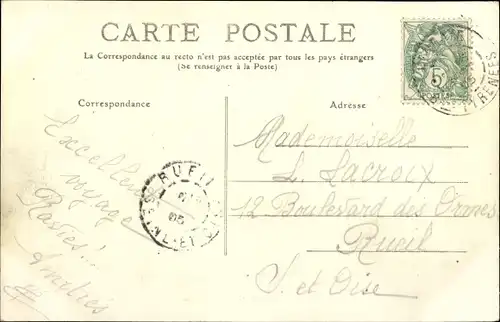 CARTE POSTALE
La Correspondance au recto n'est pas acceptée par tous les pays étrangers
(Se renseigner à la Poste)
Correspondance
Adresse
Excellent
voyage
Amitiés
Mademoiselle
L. Lacroix
12 Boulevard des Ormes
Rueil
S. et Oise
RUEIL
PYRENEES
5